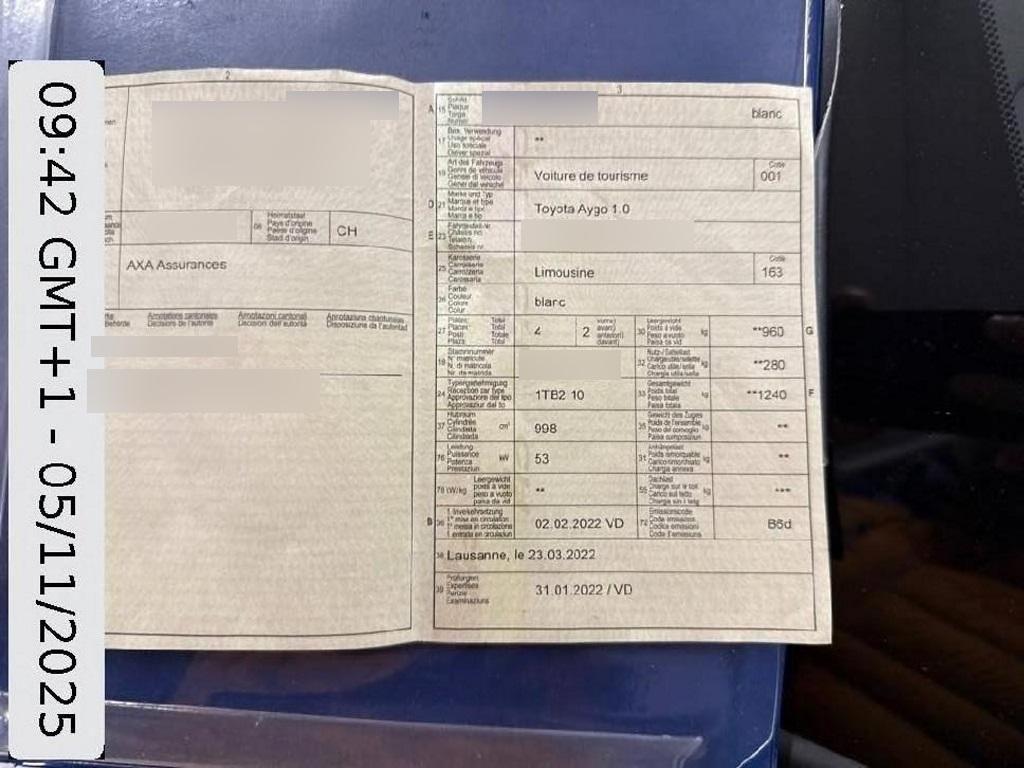 09:42 GMT+1 - 05/11/2025
2
Heimatstaat
08 Pays d'origine
Paese d'origine
Stad d'origin
CH
AXA Assurances
Annotations cantonales
Décisions de l'autorité
Annotazioni cantonali
Decisioni dell'autorità
Annotaziuns chantunalas
Disposiziuns da l'autoritad
3
A 15 Schild
Plaque
Targa
Numer
blanc
17 Bes. Verwendung
Usage spécial
Uso speciale
Diever spezial
**
19 Art des Fahrzeugs
Genre de véhicule
Genere di veicolo
Gener dal vehichel
Voiture de tourisme
Code
001
D 21 Marke und Typ
Marque et type
Marca e tipo
Marca e tip
Toyota Aygo 1.0
E 23 Fahrgestell-Nr.
Châssis no
Telaio n.
Schassis nr.
25 Karosserie
Carrosserie
Carrozzeria
Carossaria
Limousine
Code
163
26 Farbe
Couleur
Colore
Colur
blanc
27 Plätze: Total
Places: Total
Posti: Totale
Plazs: Total
4
2
vorne)
avant)
anteriori)
davant)
30 Leergewicht
Poids à vide
Peso a vuoto
Paisa da vid
kg
**960
G
18 Stammnummer
N° matricule
N. di matricola
Nr. da matricla
32 Nutz-/Sattellast
Charge utile/sellette
Carico utile/sella
Chargia utila/sella
kg
**280
24 Typengenehmigung
Réception par type
Approvazione del tipo
Approvaziun dal tip
1TB2 10
33 Gesamtgewicht
Poids total
Peso totale
Paisa totala
kg
**1240
F
37 Hubraum
Cylindrée
Cilindrata
Cilindrada
cm³
998
35 Gewicht des Zuges
Poids de l'ensemble
Peso del convoglio
Paisa cumposiziun
kg
**
76 Leistung
Puissance
Potenza
Prestaziun
kW
53
31 Anhängelast
Poids remorquable
Carico rimorchiato
Chargia annexa
kg
**
78 kW/kg
Leergewicht
poids à vide
peso a vuoto
paisa da vid
**
55 Dachlast
Charge sur le toit
Carico sul tetto
Chargia sin il tetg
kg
***
B 36 1. Inverkehrsetzung
1re mise en circulation
1a messa in circolazione
1. entrada en circulaziun
02.02.2022 VD
72 Emissionscode
Code émissions
Codice emissioni
Code d'emissiuns
B6d
38 Lausanne, le 23.03.2022
39 Prüfungen
Expertises
Perizie
Examinaziuns
31.01.2022 / VD